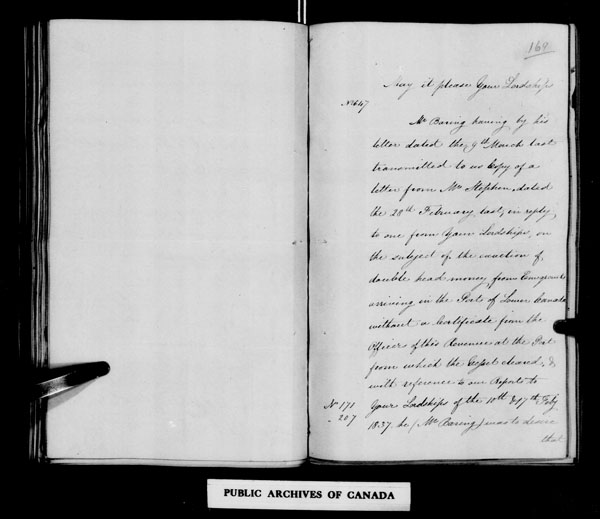 169
May it please Your Lordships
No 647
Mr Baring having by his
letter dated the 9th March last
transmitted to us Copy of a
letter from Mr Stephen, dated
the 28th February last, in reply
to one from Your Lordships, on
the subject of the exaction of
double head money from Emigrants
arriving in the Port of Lower Canada
without a Certificate from the
Officers of this Revenue at the Port
from which the Vessel cleared, &
with reference to our Reports to
No 171
207
Your Lordships of the 10th & 17th Feby
1837, he (Mr Baring) was to desire
that
PUBLIC ARCHIVES OF CANADA